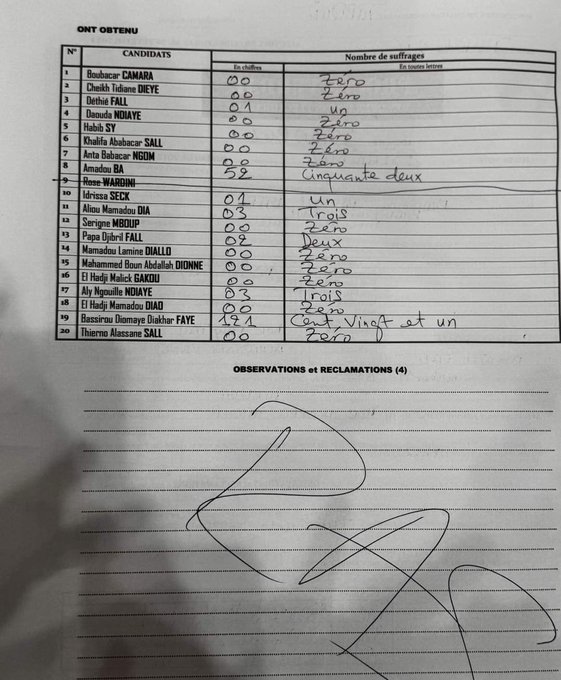 ONT OBTENU
N° CANDIDATS Nombre de suffrages
En chiffres En toutes lettres
1 Boubacar CAMARA 00 Zéro
2 Cheikh Tidiane DIEYE 00 Zéro
3 Déthié FALL 01 un
4 Daouda NDIAYE 00 Zéro
5 Habib SY 00 Zéro
6 Khalifa Ababacar SALL 00 Zéro
7 Anta Babacar NGOM 00 Zéro
8 Amadou BA 52 Cinquante deux
9 Rose WARDINI
10 Idrissa SECK 01 un
11 Aliou Mamadou DIA 03 Trois
12 Serigne MBOUP 00 Zéro
13 Papa Djibril FALL 02 Deux
14 Mamadou Lamine DIALLO 00 Zéro
15 Mahammed Boun Abdallah DIONNE 00 Zéro
16 El Hadji Malick GAKOU 00 Zéro
17 Aly Ngouille NDIAYE 03 Trois
18 El Hadji Mamadou DIAO 00 Zéro
19 Bassirou Diomaye Diakhar FAYE 121 Cent Vingt et un
20 Thierno Alassane SALL 00 Zéro
OBSERVATIONS et RECLAMATIONS (4)